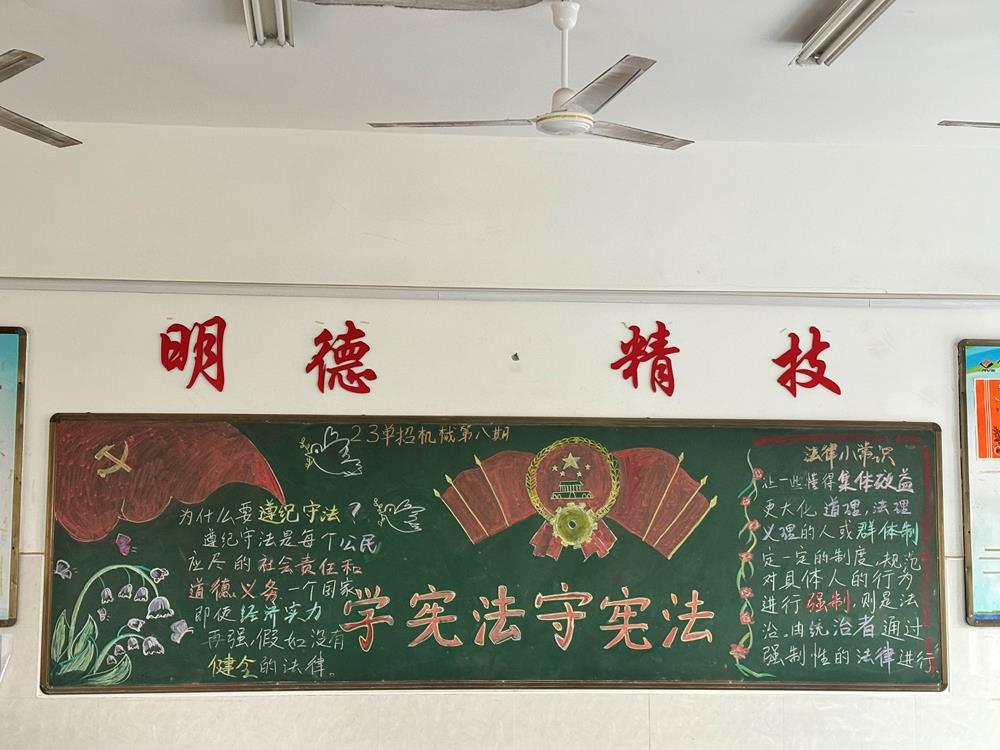 明德·精技
23单招机械第八期
为什么要遵纪守法？
遵纪守法是每个公民
应尽的社会责任和
道德义务.一个国家
即使经济实力
再强,假如没有
健全的法律。
学宪法守宪法
法律小常识
让一些懂得集体效益
更大化,道理,法理
义理的人或群体制
定一定的制度,规范
对具体人的行为
进行强制.则是法
治.由统治者通过
强制性的法律进行